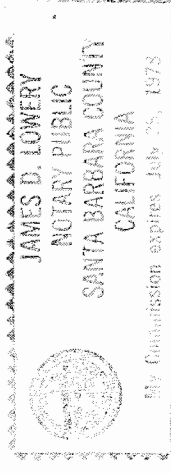 JAMES D. LOWERY
NOTARY PUBLIC
SANTA BARBARA COUNTY
CALIFORNIA
My Commission expires July 25, 1973